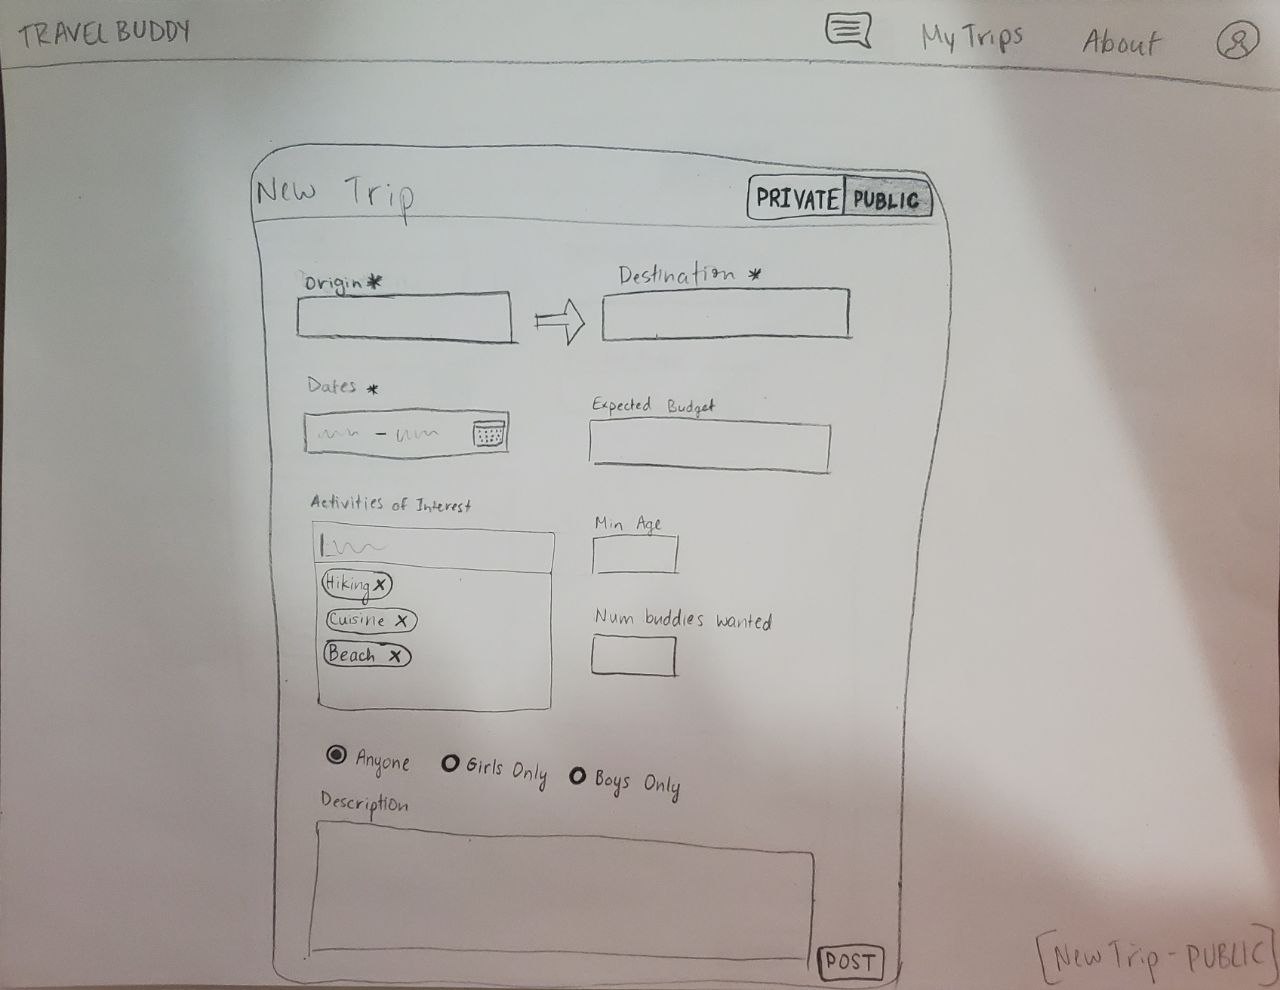 TRAVEL BUDDY My Trips About
New Trip PRIVATE PUBLIC
Origin * Destination *
Dates * Expected Budget
-
Activities of Interest
Min Age
Hiking X
Cuisine X
Num buddies wanted
Beach X
Anyone Girls Only Boys Only
Description
POST
[New Trip - PUBLIC]